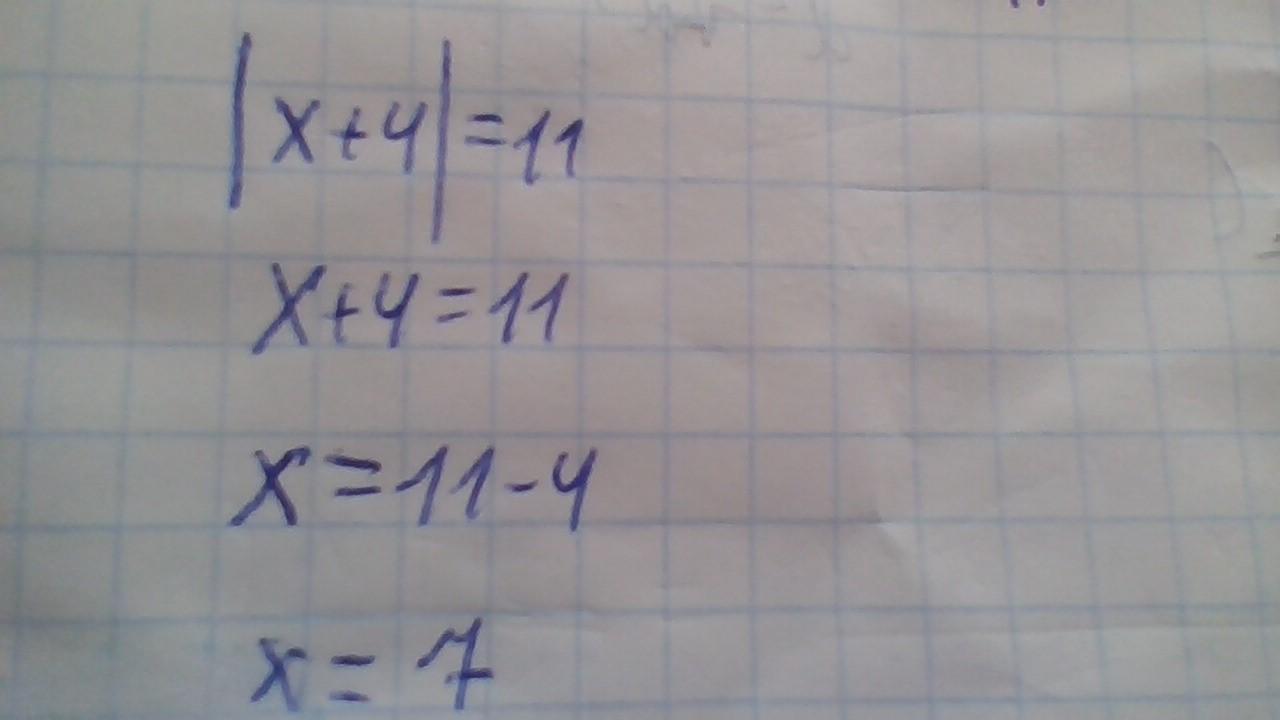 |x+4|=11
x+4=11
x=11-4
x=7